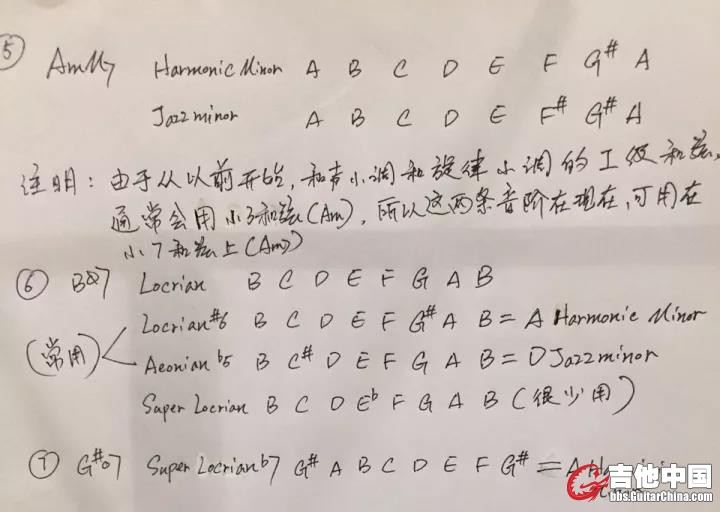 ⑤ AmM7 Harmonic Minor A B C D E F G# A
Jazz minor A B C D E F# G# A
注明：由于从以前开始，和声小调和旋律小调的I级和弦，
通常会用小3和弦(Am)，所以这两条音阶在现在，可用在
小7和弦上(Am7)
⑥ BØ7 Locrian B C D E F G A B
Locrian#6 B C D E F G# A B = A Harmonic Minor
(常用)
Aeonian b5 B C# D E F G A B = D Jazz minor
Super Locrian B C D Eb F G A B (很少用)
⑦ G#o7 Super Locrian b7 G# A B C D E F G# = A
吉他中国
bbs.GuitarChina.com